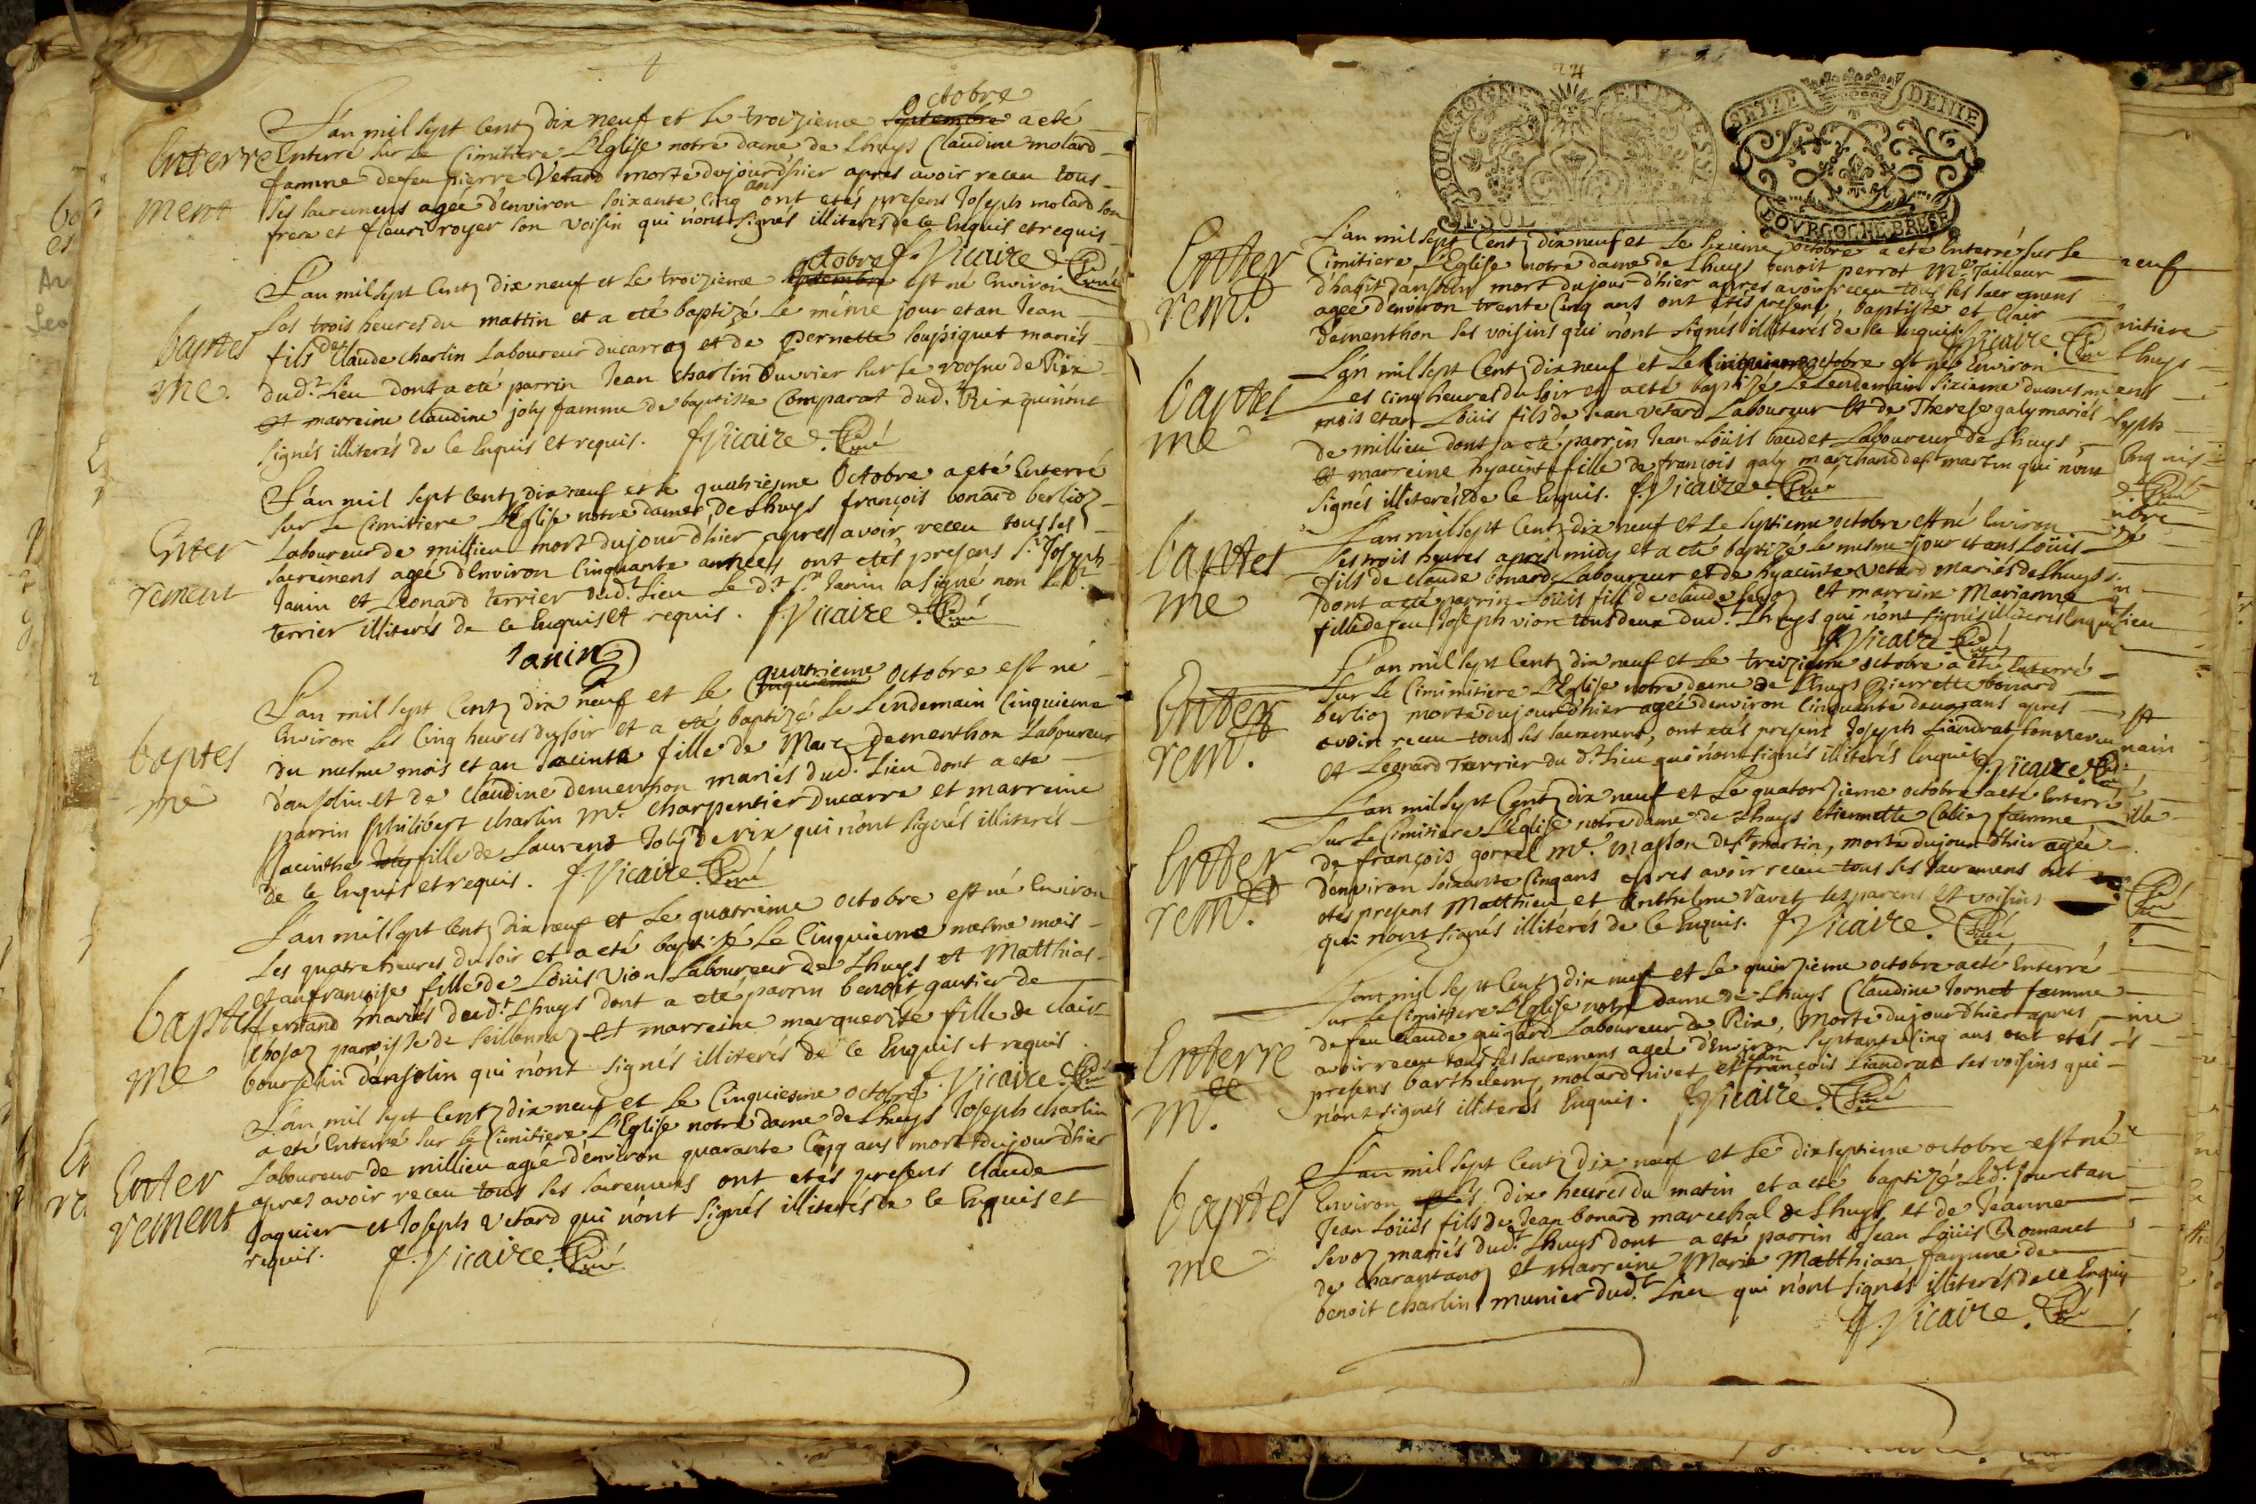 L'an mil sept Centz dix neuf et le troizieme septembre octobre a eté
Enterre
Enterré sur le Cimitiere L'Eglise notre dame de Lhuys Claudine molard
famme de feu pierre Vetard morte dujourd'hier apres avoir receu tous
ment
ses sacremens agée d'environ soixante cinq ans ont etés presens Joseph molard son
frere et fleuri royer son voisin qui n'ont signés illiterés de ce Enquis et requis
f. Vicaire Curé
L'an mil sept Centz dix neuf et le troizieme septembre octobre est né Environ
Les trois heures du mattin et a eté baptizé le méme jour et an Jean
baptes
me.
fils de Claude charlin Laboureur ducarroz et de pernette soupiquet mariés
dud.t Lieu dont a eté parrin Jean charlin ouvrier sur le roosne de Rix
et marreine claudine joly famme de baptiste Comparat dud.t Rix qui n'ont
signés illiterés de ce Enquis et requis. f. Vicaire. Curé
L'an mil sept Centz dix neuf et le quatriesme Octobre a eté Enterré
sur le Cimitiere L'Eglise notre dame de Lhuys françois bonard berlioz
Enter
rement
Laboureur de millieu mort dujour d'hier apres avoir receu tous ses
sacremens agée d'Environ Cinquante années ont etés presens s.r Joseph
Janin et Leonard terrier dud.t Lieu le d.t s.r Janin a signé non led.t
terrier illiterés de ce Enquis et requis. f. Vicaire. Curé
Janin
L'an mil sept Centz dix neuf et le Cinquieme quatrieme octobre est né
Environ les Cinq heures du soir et a eté baptizé le Lendemain Cinquieme
baptes
me
du mesme mois et an Jacinte fille de Marc Dementhon Laboureur
d'ansolin et de Claudine dementhon mariés dud.t Lieu dont a eté
parrin philibert charlin M.e charpentier ducarre et marreine
Jacinthe Joly fille de Laurent Joly de rix qui n'ont signés illiterés
de ce Enquis et requis. f. Vicaire. Curé
L'an mil sept Centz dix neuf et le quatrieme octobre est né Environ
Les quatre heures du soir et a eté baptizé Le Cinquieme mesme mois
et an françoise fille de Loüis Vion Laboureur de Lhuys et Matthias
baptes
me
ferrand mariés dud.t Lhuys dont a eté parrin benoit gautier de
chosaz paroisse de seillonnaz et marreine marguerite fille de clair
bourselin d'ansolin qui n'ont signés illiterés de ce Enquis et requis
f. Vicaire. Curé
L'an mil sept Centz dix neuf et le Cinquiesme octobre
a eté Enterré sur le Cimitiere L'Eglise notre dame de Lhuys Joseph charlin
Enter
rement
Laboureur de millieu agée d'environ quarante Cinq ans mort dujour d'hier
apres avoir receu tous ses sacremens ont etés presens Claude
Jaquier et Joseph Vetard qui n'ont signés illiterés de ce Enquis et
requis. f. Vicaire. Curé
24
BOURGOGNE ET BRESSE
SEIZE DENIE
BOVRGOGNE BRESSE
L'an mil sept Centz dix neuf et le sixieme octobre a eté Enterré sur le
Enter
rem.t
Cimitiere L'Eglise notre dame de Lhuys benoit perrot M.e tailleur
d'habit d'ansolin mort dujour d'hier apres avoir receu tous ses sacremens
agée d'environ trente Cinq ans ont etés presens baptiste et Clair
dementhon ses voisins qui n'ont signés illiterés de ce Enquis. f. Vicaire. Curé
L'an mil sept Centz dix neuf et Le Cinquieme octobre est né Environ
baptes
me
Les cinq heures du soir et a eté baptizé Le Lendemain sixieme du mesme
mois et an Loüis fils de Jean vetard Laboureur et de Therese galy mariés
de millieu dont a eté parrin Jean Loüis baudet Laboureur de Lhuys
et marreine hyacinte fille de françois galy marchand de s.t martin qui n'ont
signés illiterés de ce Enquis. f. Vicaire. Curé
L'an mil sept Centz dix neuf et Le septieme octobre est né Environ
baptes
me
Les trois heures apres midy et a eté baptizé Le mesme jour et ans Loüis
fils de claude bonard Laboureur et de hyacinte vetard mariés de Lhuys
dont a eté parrin Loüis fils de claude et marreine Marianne
fille de feu Joseph vion tous deux dud.t Lhuys qui n'ont signés illiterés Enquis
f. Vicaire Curé
L'an mil sept Centz dix neuf et Le treizieme octobre a eté Enterré
Enter
rem.t
sur Le Cimimitiere L'Eglise notre dame de Lhuys Pierrette bonard
berlioz morte dujour d'hier agée d'environ Cinquante deux ans apres
avoir receu tous ses sacremens, ont etés presens Joseph Liandrat son neveu
et Leonard Terrier du d.t Lieu qui n'ont signés illiterés Enquis
f. Vicaire. Curé
L'an mil sept Centz dix neuf et Le quatorzieme octobre a eté Enterré
Enter
rem.t
sur Le Cimitiere L'Eglise notre dame de Lhuys etiennette famme
de françois gorrel M.e masson de s.t martin, morte dujour d'hier agée
d'environ soixante Cinq ans apres avoir receu tous ses sacremens ont
etés presens Matthieu et Anthelme ravet ses parens et voisins
qui n'ont signés illiterés de ce Enquis. f. Vicaire. Curé
L'ant mil sept Centz dix neuf et Le quinzieme octobre a eté Enterré
sur Le Cimitiere L'Eglise notre dame de Lhuys Claudine Tornet famme
Enterre
m.t
de feu claude guigard Laboureur de Rix, morte dujour d'hier apres
avoir receu tous ses sacremens agée d'Environ septante Cinq ans ont etés
presens barthelemy molard rivet et Jean françois Liandrat ses voisins qui
n'ont signés illiterés Enquis. f. Vicaire. Curé
L'an mil sept Centz dix neuf et Le dixseptieme octobre est né
baptes
me
Environ dix heures du matin et a eté baptizé Led.t Jour et an
Jean Loüis fils de Jean bonard marechal de Lhuys et de Jeanne
sevoz mariés dud.t Lhuys dont a eté parrin Jean Loüis Romanet
de charantanoz et marreine Marie Matthian famme de
benoit charlin munier dud.t Lieu qui n'ont signés illiterés de ce Enquis
f. Vicaire. Curé